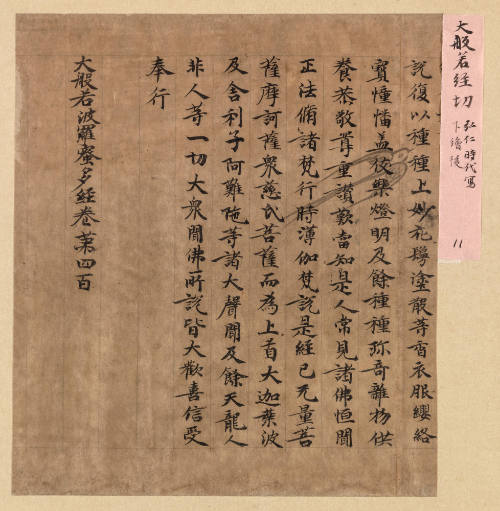 説復以種種上妙花鬘塗散等香衣服纓絡
寶幢幡盖伎樂燈明及餘種種珎奇雜物供
養恭敬尊重讃歎當知是人常見諸佛恒聞
正法脩諸梵行時薄伽梵說是經已无量菩
薩摩訶薩衆慈氏菩薩而為上首大迦葉波
及舍利子阿難陁等諸大聲聞及餘天龍人
非人等一切大衆聞佛所說皆大歡喜信受
奉行
大般若波羅蜜多經卷第四百
大般若経切
弘仁時代寫
11